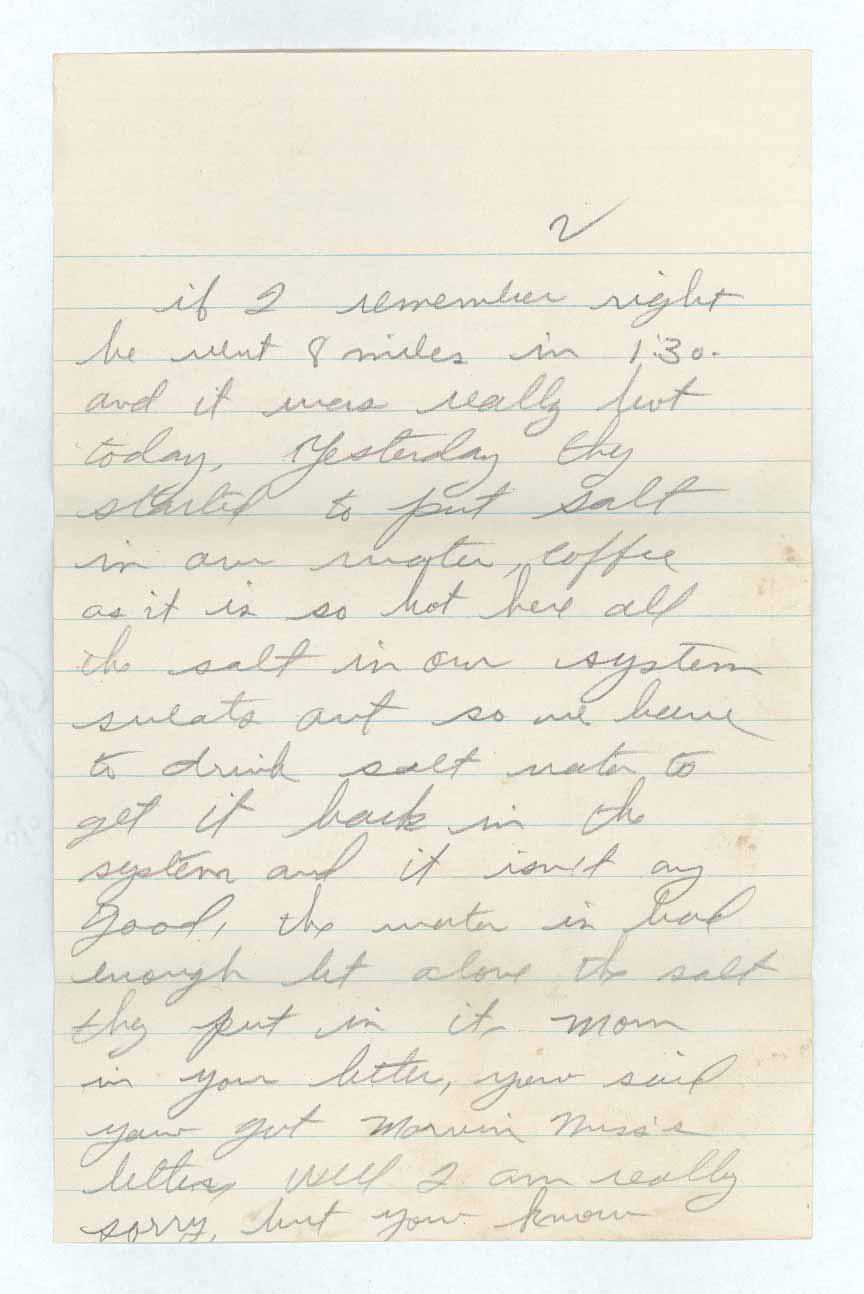 2
if I remember right
he went 8 miles in 1:30.
and it was really hot
today, Yesterday they
started to put salt
in our water, coffee
as it is so hot here all
the salt in our system
sweats out so we have
to drink salt water to
get it back in the
system and it isn't any
good, the water is bad
enough let alone the salt
they put in it. Mom
in your letter, you said
you got Marvin
letters Well I am really
sorry, but you know